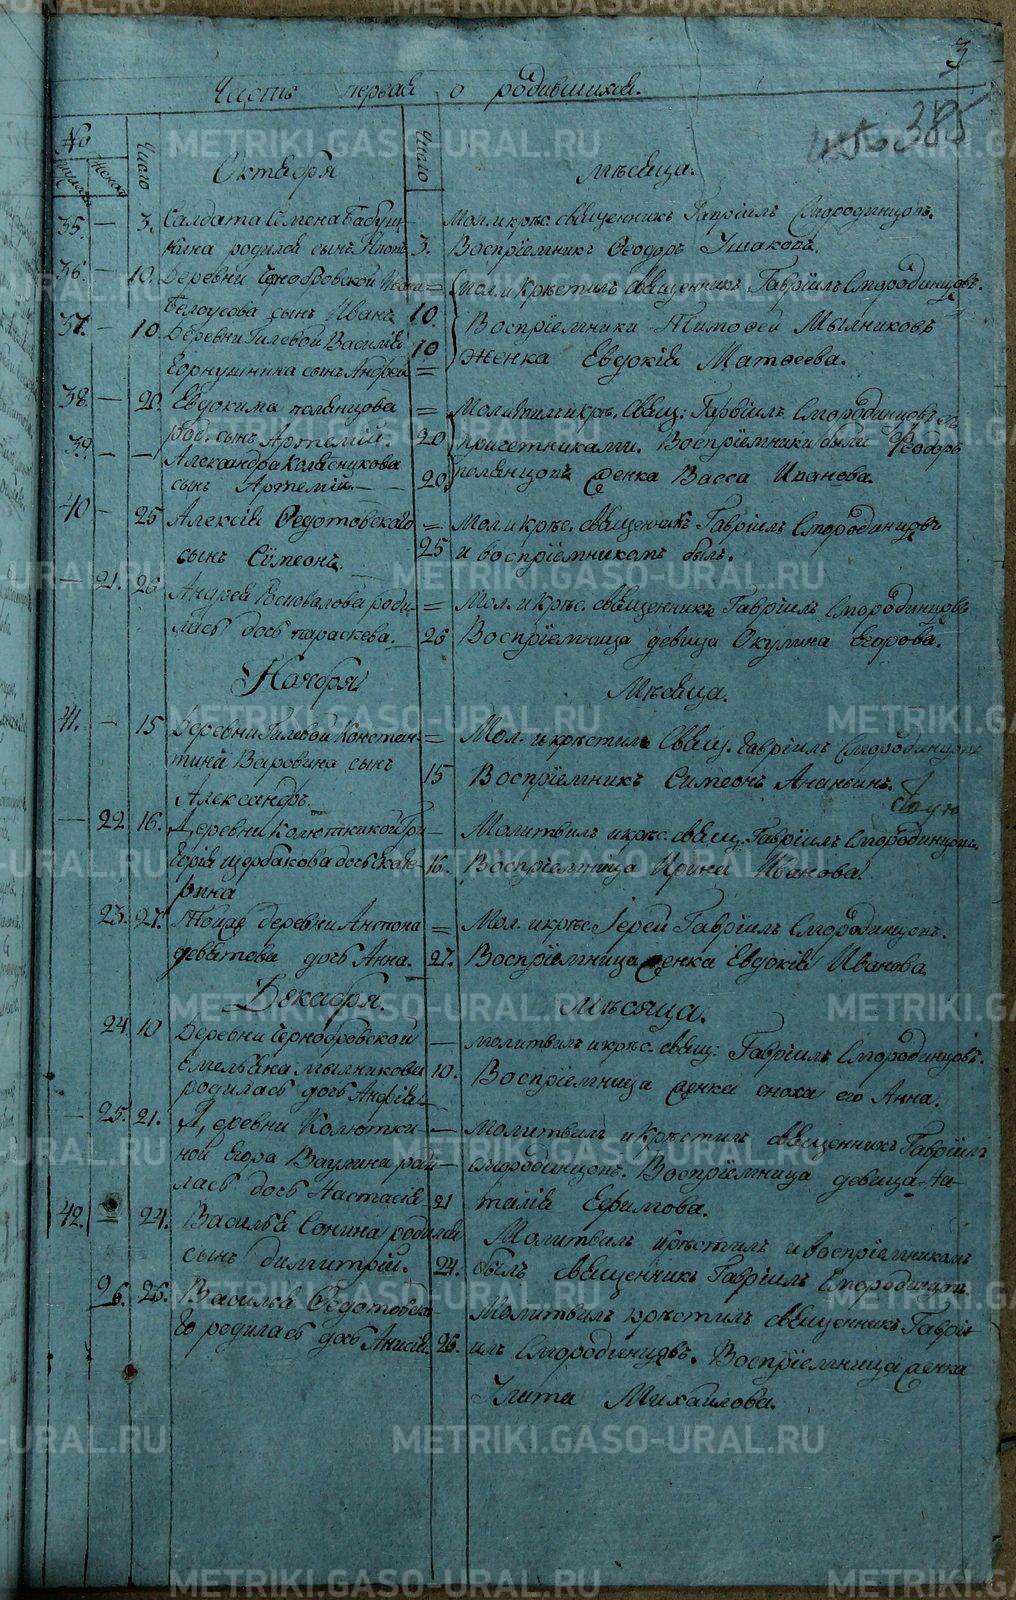 3
Часть первая о родившихся.
385
№ Число Октября Число Мѣсяца.
35. — 3. Салдата Семена Бабуш-
кина родился сынъ
3. Мол. и крѣс. священникъ Гавріилъ Смородинцовъ.
Воспріемникъ Ѳеодоръ Ушаковъ.
36 — 10. Деревни Чернобровской Ивана
Белоусова сынъ Иванъ
10. Мол. и крѣстилъ священникъ Гавріилъ Смородинцовъ.
37. — 10. Деревни Гилевой Василія
сынъ Андрей
10 Воспріемники Тимофей Мыльниковъ
женка Евдокія Матвеева.
38. — 20. Евдокима полянцова
род. сынъ Артемій.
20 Молитвилъ и крѣ. свящ: Гавріилъ Смородинцовъ съ
причетниками. Воспріемники были Феодоръ
39. — — Александра Колясникова
сынъ Артемій —
20. полянцовъ женка Васса Иванова.
40 — 25 Алексія Федотовскаго
сынъ Сѵмеонъ.
25 Мол. и крѣс. священникъ Гавріилъ Смородинцовъ
и воспріемникомъ былъ.
— 21. 26 Андрея роди-
лась дочь параскева.
26 Мол. и крѣс. священникъ Гавріилъ Смородинцовъ
Воспріемница девица Окулина Егорова.
Ноября Мѣсяца.
41. — 15 Деревни Гилевой Констан-
тина Варовина сынъ
Александръ.
15 Мол. и крѣстилъ Свящ. Гавріилъ Смородинцовъ
Воспріемникъ Симеонъ Ананьинъ.
— 22 16. Деревни Колюткиной Гри-
горія щербакова дочь Екате-
рина
16. Молитвилъ и крѣс. свящ. Гавріилъ Смородинцовъ.
Воспріемница Ирина Иванова.
23. 27. Тоцже деревни Антона
девятова дочь Анна.
27. Мол. и крѣс. Іерей Гавріилъ Смородинцовъ.
Воспріемница женка Евдокія Иванова
Декабря. Мѣсяца.
24. 10 Деревни Чернобровской
Емельяна мыльникова
родилась дочь
10. молитвилъ и крѣс. свящ: Гавріилъ Смородинцовъ.
Воспріемница женка сноха его Анна.
— 25. 21. Деревни Колютки-
ной Егора Ваулина роди-
лась дочь Настасія
21 Молитвилъ и крѣстилъ священникъ Гавріилъ
Смородинцовъ. Воспріемница девица На-
талія Ефимова.
42. = 24. Василья Сонина родился
сынъ димитрій.
24. Молитвилъ крѣстилъ и воспріемникомъ
былъ священникъ Гавріилъ Смородинцовъ
26. 25. Василья Федотовска-
го родилась дочь Анисія.
26. Молитвилъ крѣстилъ священникъ Гаврі-
илъ Смородинцовъ. Воспріемница женка
Улита Михайлова.
METRIKI.GASO-URAL.RU